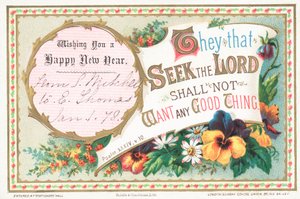 Wishing You a
Happy New Year.
to E. Thomas
Jan 1. 78.
They that
SEEK THE LORD
SHALL NOT
WANT ANY GOOD THING
Psalm XXXIV. v. 10
ENTERED AT STATIONERS' HALL
LONDON SUNDAY SCHOOL UNION